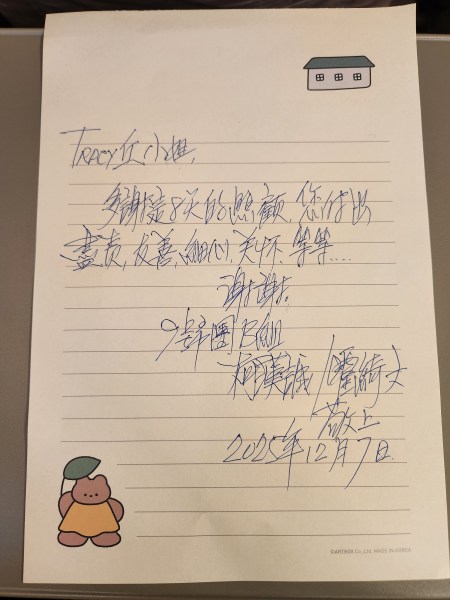 TRACY丘小姐,
多謝這8天的照顧,您付出
盡责,友善,細心,关怀,等等....
谢谢.
9婦團B組
柯漢誠/瞿綺文
敬上
2025年12月7日.
©ARTBOX Co.,Ltd. MADE IN KOREA